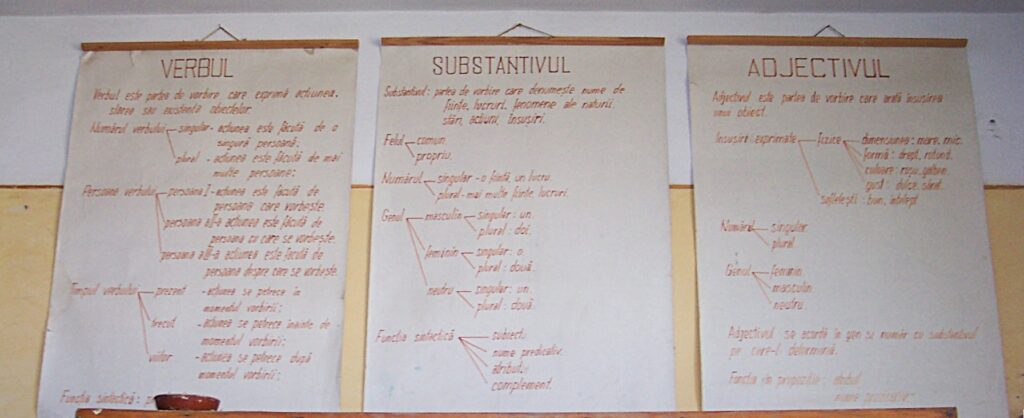 VERBUL
Verbul este partea de vorbire care exprimă acțiunea,
starea sau existența obiectelor.
Numărul verbului singular - acțiunea este făcută de o
singură persoană;
plural - acțiunea este făcută de mai
multe persoane;
Persoana verbului persoana I - acțiunea este făcută de
persoana care vorbește.
persoana a II-a acțiunea este făcută de
persoana cu care se vorbește.
persoana a III-a acțiunea este făcută de
persoana despre care se vorbește.
Timpul verbului prezent - acțiunea se petrece în
momentul vorbirii;
trecut - acțiunea se petrece înainte de
momentul vorbirii;
viitor - acțiunea se petrece după
momentul vorbirii;
Funcția sintactică:
SUBSTANTIVUL
Substantivul: partea de vorbire care denumește nume de
ființe, lucruri, fenomene ale naturii,
stări, acțiuni, însușiri.
Felul comun.
propriu.
Numărul singular - o ființă, un lucru.
plural - mai multe ființe, lucruri.
Genul masculin singular: un.
plural: doi.
feminin singular: o
plural: două.
neutru singular: un.
plural: două.
Funcția sintactică subiect.
nume predicativ.
atribut.
complement.
ADJECTIVUL
Adjectivul este partea de vorbire care arată însușirea
unui obiect.
Însușiri exprimate fizice dimensiunea: mare, mic.
formă: drept, rotund.
culoare: roșu, galben.
gust: dulce, sărat.
sufletești: bun, înțelept
Numărul singular
plural
Genul feminin
masculin
neutru.
Adjectivul se acordă în gen și număr cu substantivul
pe care-l determină.
Funcția în propoziție: atribut
nume predicativ